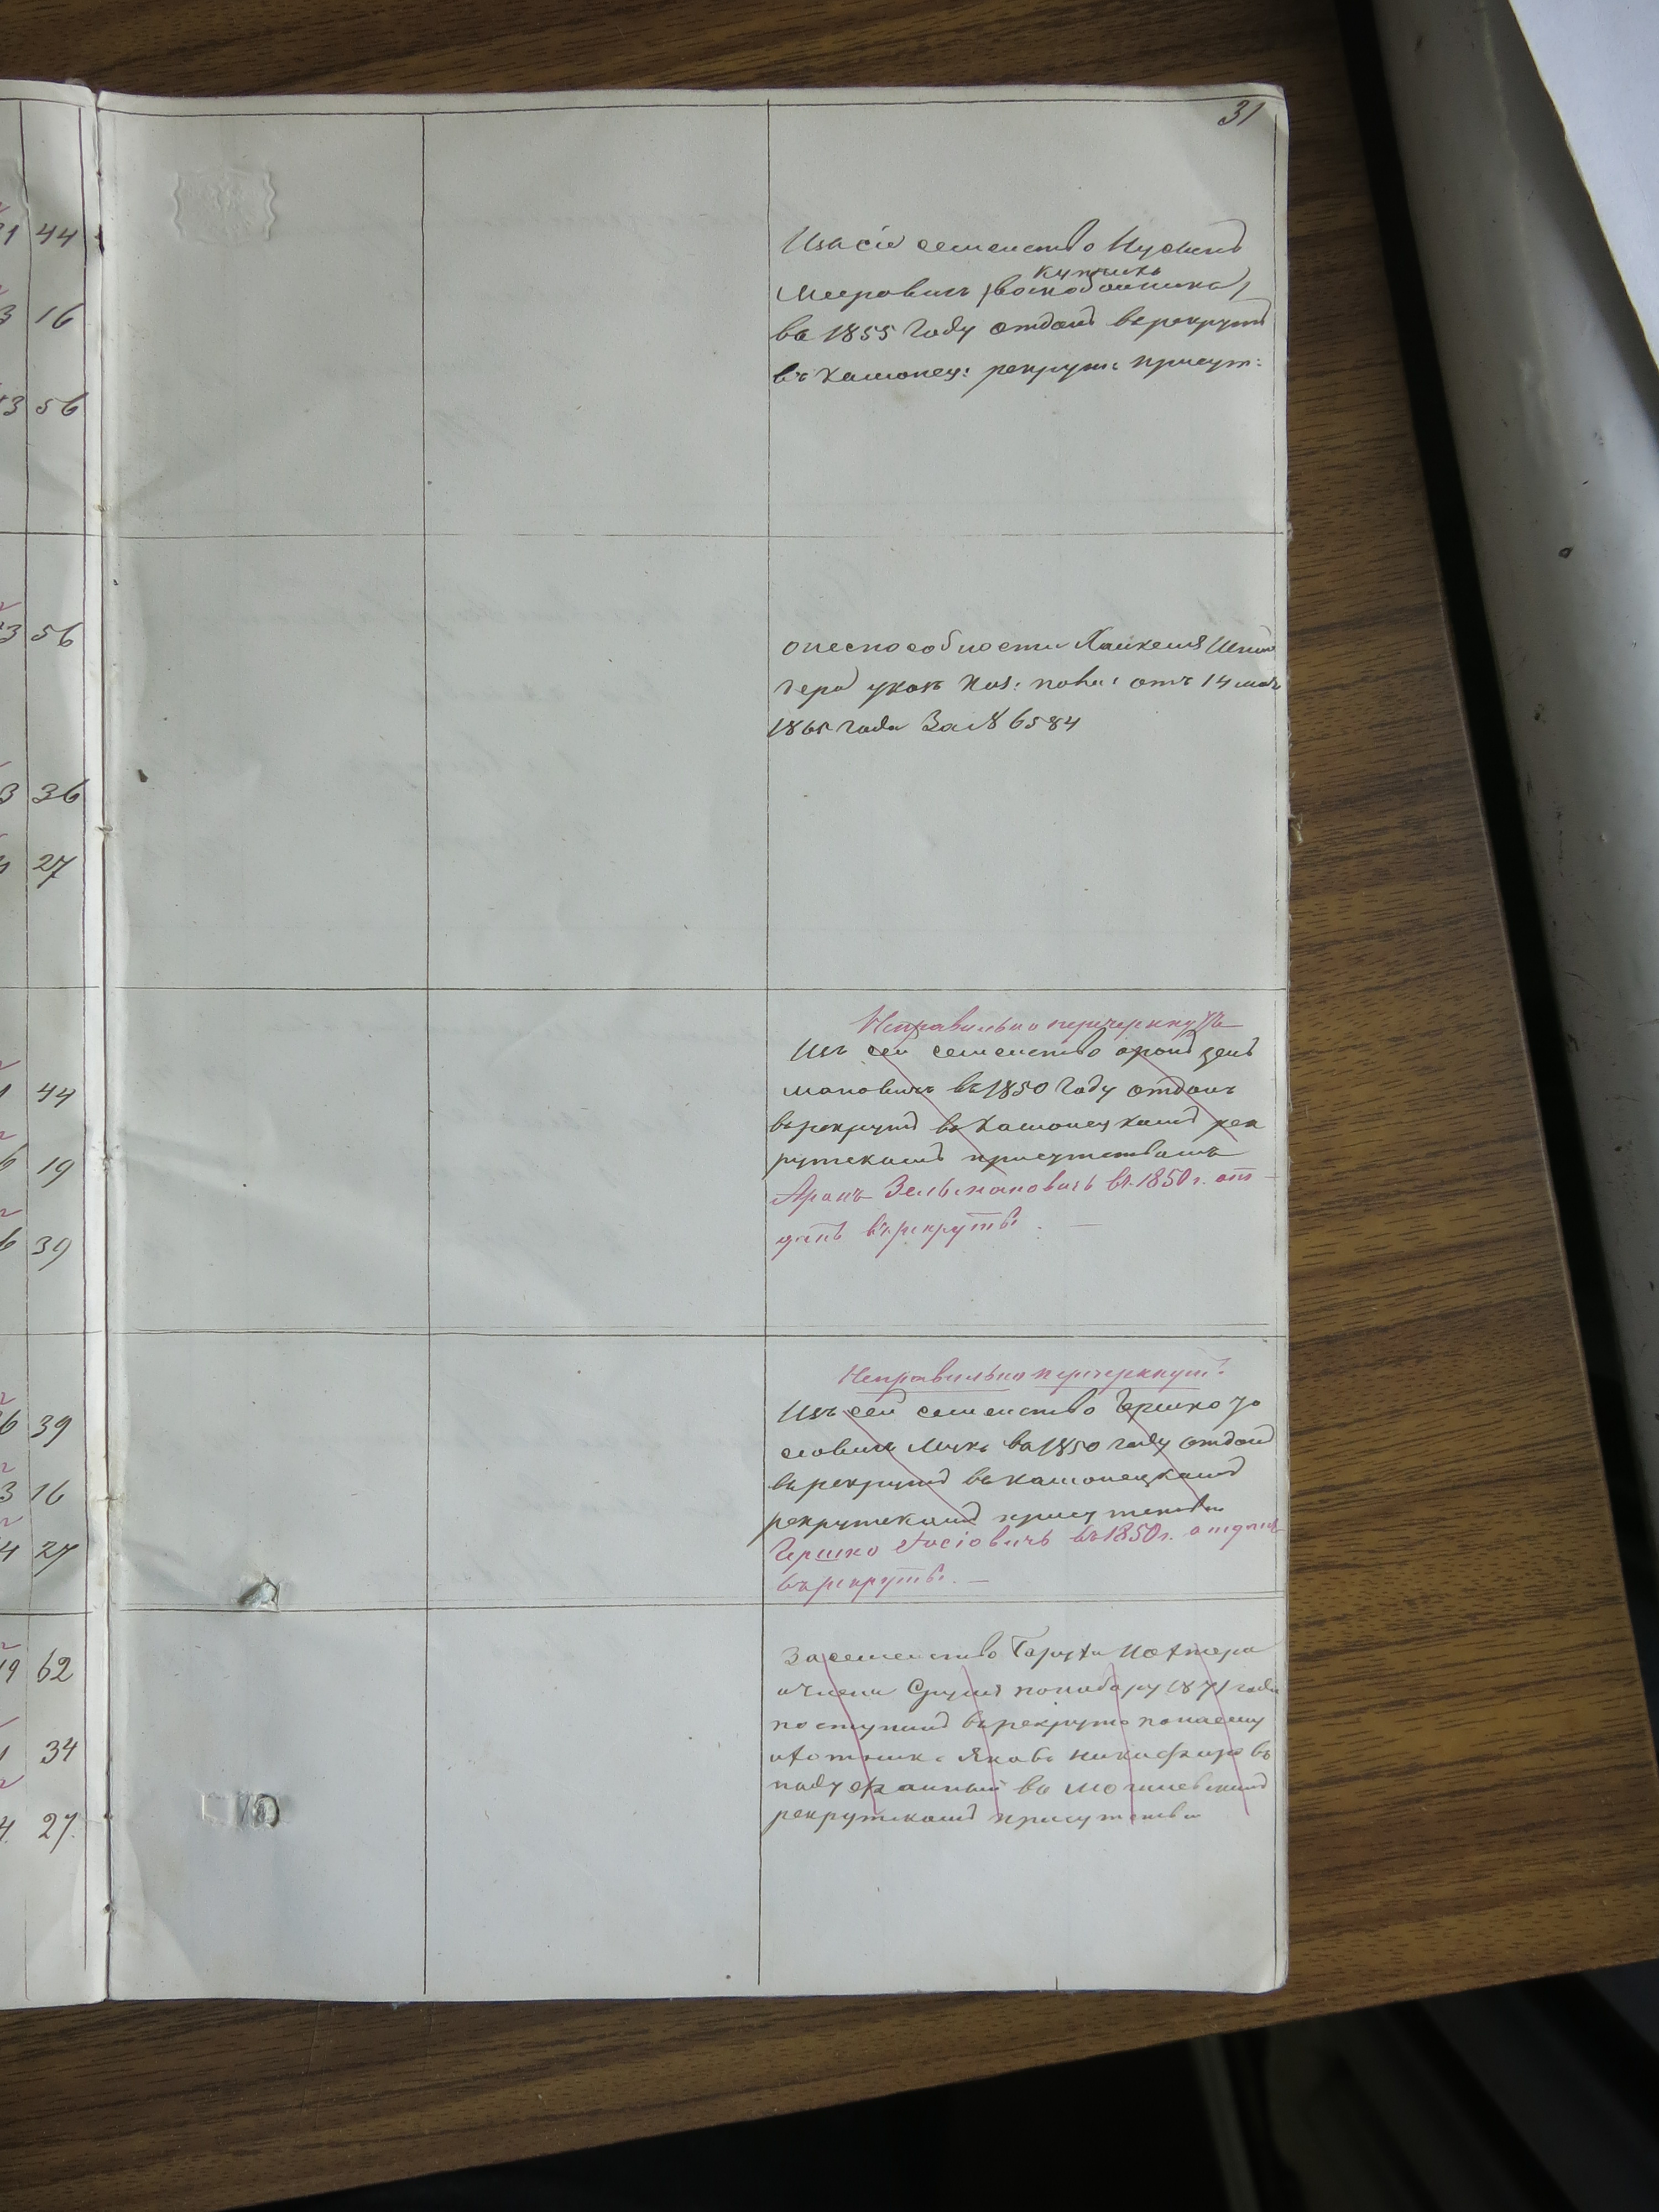 31
44
16
56
56
36
27
44
19
39
39
16
27
62
34
27.
Изъ сіе семейство Нусынъ
купчикъ
Мееровичъ (воскобойника)
въ 1855 году отданъ въ рекруты
въ Каменец: рекрут: присут:
о неспособности Хаикеля
указ Каз: пала: отъ 14 мая
1865 года За № 6584
Неправильно перечеркнуто
Изъ сей семейство Аронъ Зель
мановичъ въ 1850 году отданъ
въ рекруты въ Каменецкомъ рек
рутскомъ присутствіи
Аронъ Зельмановичъ въ 1850 г. от-
данъ въ рекруты. —
Неправильно перечеркнут:
Изъ сей семейство Гершко Іо
сіовичъ въ 1850 году отданъ
въ рекруты въ Каменецкомъ
рекрутскомъ присутствіи
Гершко Іосіовичъ въ 1850 г. отданъ
въ рекруты. —
За семейство
Сруль по набору 1871 года
поступилъ въ рекруты по найму
охотникъ Яковъ Никифоровъ
въ Могилевскомъ
рекрутскомъ присутствіи